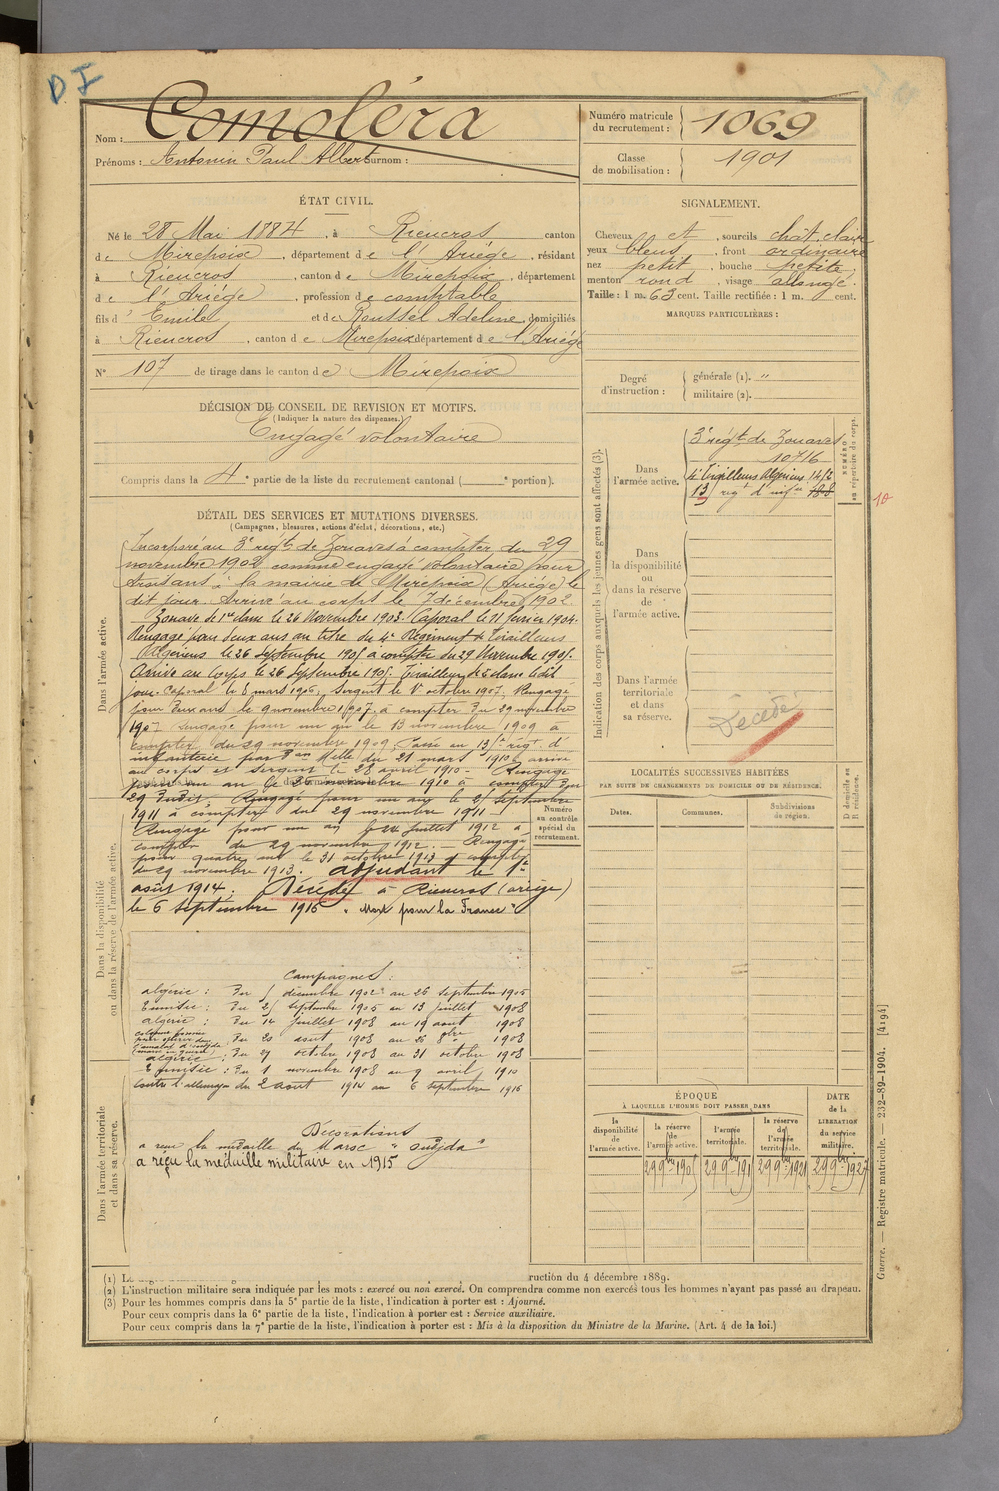 D I
Nom : Comoléra
Prénoms : Antonin Paul Albert Surnom :
Numéro matricule du recrutement : 1069
Classe de mobilisation : 1901
ÉTAT CIVIL.
Né le 28 Mai 1884, à Rieucros canton
de Mirepoix, département de l'Ariège, résidant
à Rieucros, canton de Mirepoix, département
de l'Ariège, profession de comptable
fils d'Emile et de Roussel Adeline, domiciliés
à Rieucros, canton de Mirepoix département de l'Ariège
N° 107 de tirage dans le canton de Mirepoix
SIGNALEMENT.
Cheveux et, sourcils chât. clair
yeux bleus, front ordinaire
nez petit, bouche petite,
menton rond, visage allongé.
Taille : 1 m. 63 cent. Taille rectifiée : 1 m. cent.
MARQUES PARTICULIÈRES :
Degré d'instruction : générale (1). "
militaire (2).
DÉCISION DU CONSEIL DE REVISION ET MOTIFS.
(Indiquer la nature des dispenses.)
Engagé volontaire
Compris dans la 4e partie de la liste du recrutement cantonal ( e portion).
DÉTAIL DES SERVICES ET MUTATIONS DIVERSES.
(Campagnes, blessures, actions d'éclat, décorations, etc.)
Dans l'armée active.
Incorporé au 3e régt de Zouaves à compter du 29
novembre 1902 comme engagé volontaire pour
trois ans à la mairie de Mirepoix (Ariège) le
dit jour. Arrivé au corps le 7 décembre 1902
Zouave de 1re classe le 26 Novembre 1903. Caporal le 11 février 1904.
Rengagé pour deux ans au titre du 4e Régiment de Tirailleurs
Algériens le 26 septembre 1905 à compter du 29 Novembre 1905.
Arrivé au Corps le 26 Septembre 1905. Tirailleur de 2e classe ledit
jour. Caporal le 6 mars 1906, Sergent le 1er octobre 1907, Rengagé
pour deux ans le 9 novembre 1907 à compter du 29 novembre
1907. rengagé pour un an le 13 novembre 1909 à
compter du 29 novembre 1909. Passé au 13e régt d'
infanterie par Don Melle du 21 mars 1910, arrivé
au corps et sergent le 28 avril 1910 - Rengagé
pour un an le 26 novembre 1910 à compter du
29 dudit. Rengagé pour un an le 25 septembre
1911 à compter du 29 novembre 1911 -
Rengagé pour un an le 24 juillet 1912 à
compter du 29 novembre 1912. - Rengagé
pour quatre ans le 31 octobre 1913 à compter
du 29 novembre 1913. adjudant le 1er
août 1914. Décédé à Rieucros (ariège)
le 6 septembre 1916 "Mort pour la France"
Dans la disponibilité
ou dans la réserve de l'armée active.
Numéro au contrôle spécial du recrutement.
Campagnes :
algérie : Du 5 décembre 1902 au 26 septembre 1905
Tunisie : Du 27 septembre 1905 au 13 juillet 1908
algérie : Du 14 juillet 1908 au 19 aout 1908
Du 20 aout 1908 au 26 8bre 1908
algérie : Du 27 octobre 1908 au 31 octobre 1908
Tunisie : Du 1 novembre 1908 au 9 avril 1910
Contre l'allemagne du 2 aout 1914 au 6 septembre 1916
Dans l'armée territoriale
et dans sa réserve.
Décorations
a reçu la médaille du Maroc "oudjda"
a reçu la médaille militaire en 1915
Indication des corps auxquels les jeunes gens sont affectés (3).
NUMÉRO au répertoire du corps.
Dans l'armée active.
3e régt de Zouaves
10716
4e Tirailleurs Algériens
13 régt d'infie 188
10
Dans la disponibilité ou dans la réserve de l'armée active.
Dans l'armée territoriale et dans sa réserve.
Décédé
LOCALITÉS SUCCESSIVES HABITÉES
PAR SUITE DE CHANGEMENTS DE DOMICILE OU DE RÉSIDENCE.
Dates. Communes. Subdivisions de région. D domicile ou R résidence.
ÉPOQUE
À LAQUELLE L'HOMME DOIT PASSER DANS
la disponibilité de l'armée active. la réserve de l'armée active. l'armée territoriale. la réserve de l'armée territoriale. DATE de la LIBÉRATION du service militaire.
29 9bre 1905 29 9bre 191 29 9bre 1921 29 9bre 1927
Guerre. — Registre matricule. — 232-89-1904. [4194]
(1) ruction du 4 décembre 1889.
(2) L'instruction militaire sera indiquée par les mots : exercé ou non exercé. On comprendra comme non exercés tous les hommes n'ayant pas passé au drapeau.
(3) Pour les hommes compris dans la 5e partie de la liste, l'indication à porter est : Ajourné.
Pour ceux compris dans la 6e partie de la liste, l'indication à porter est : Service auxiliaire.
Pour ceux compris dans la 7e partie de la liste, l'indication à porter est : Mis à la disposition du Ministre de la Marine. (Art. 4 de la loi.)